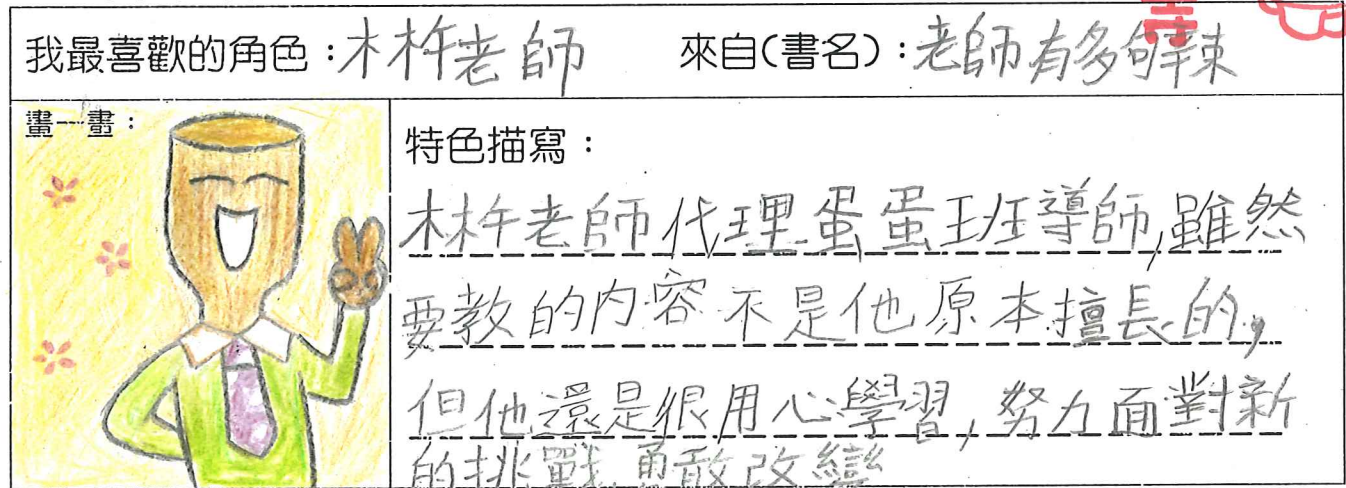 我最喜歡的角色：木杵老師 來自(書名)：老師有多夠辣
畫一畫：
特色描寫：
木杵老師代理蛋蛋班導師,雖然
要教的內容不是他原本擅長的,
但他還是很用心學習,努力面對新
的挑戰勇敢改變